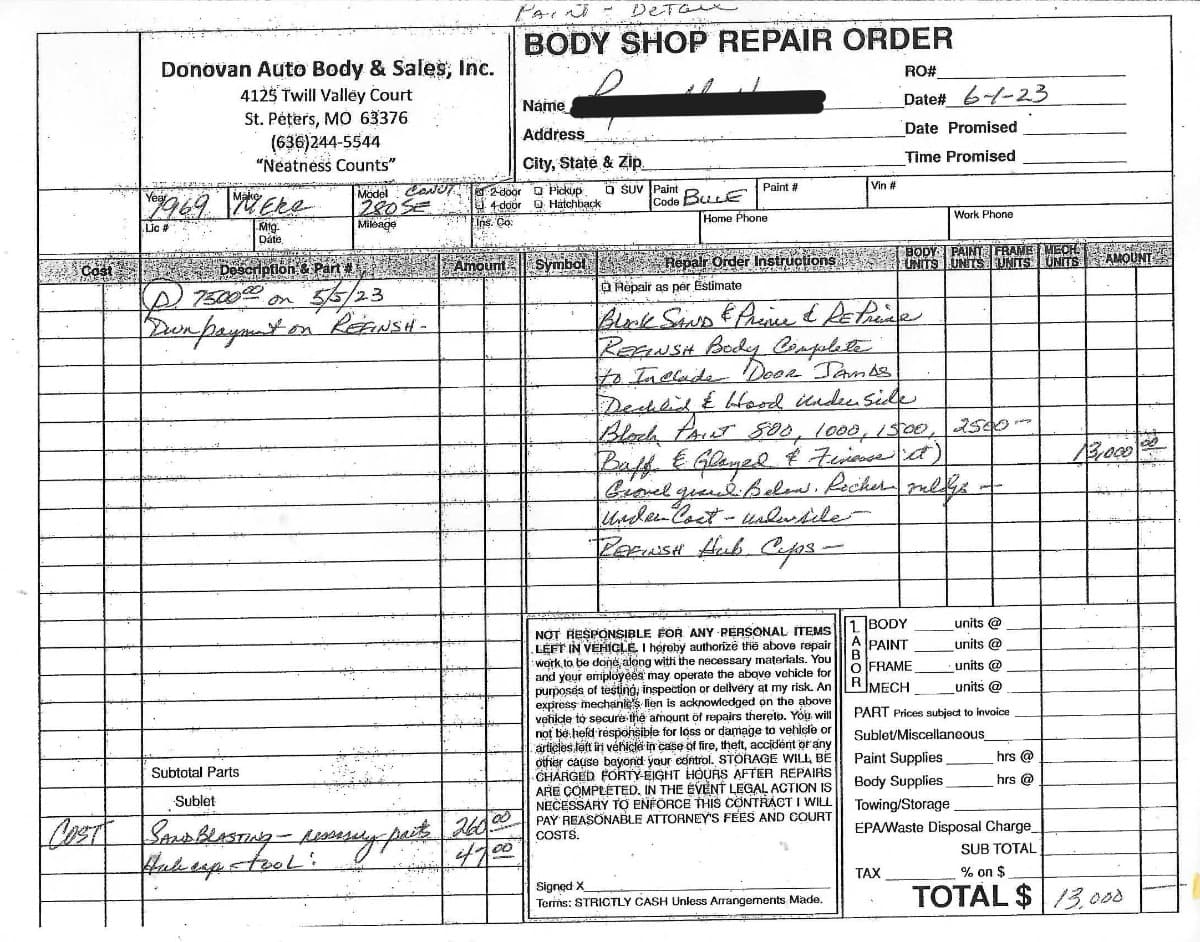 Paint - Detail
BODY SHOP REPAIR ORDER
Donovan Auto Body & Sales, Inc.
4125 Twill Valley Court
St. Peters, MO 63376
(636)244-5544
"Neatness Counts"
Name
Address
City, State & Zip
RO#
Date# 6-1-23
Date Promised
Time Promised
Year 1969
Make MERC
Model CONVT. 280SE
2-door Pickup SUV
4-door Hatchback
Paint Code BLUE
Paint #
Vin #
Lic #
Mfg. Date
Mileage
Ins. Co.
Home Phone
Work Phone
Cost Description & Part # Amount Symbol Repair Order Instructions BODY UNITS PAINT UNITS FRAME UNITS MECH. UNITS AMOUNT
Repair as per Estimate
P 7500.00 on 5/5/23
Down payment on REFINSH -
Block SAND & Prime & RePrime
REFINSH Body Complete
to Include Door Jambs
Decklid & Hood underside
Block PAINT 800, 1000, 1500, 2500 -
Buff & Glazed & Finesse it) 13,000 00
Gravel guard Below Rocker mldgs -
Under Coat - underside -
REFINSH Hub Caps -
Subtotal Parts
Sublet
COST SANDBLASTING - necessary parts 260 00
Hub cap - tool 47 00
NOT RESPONSIBLE FOR ANY PERSONAL ITEMS
LEFT IN VEHICLE. I hereby authorize the above repair
work to be done along with the necessary materials. You
and your employees may operate the above vehicle for
purposes of testing, inspection or delivery at my risk. An
express mechanic's lien is acknowledged on the above
vehicle to secure the amount of repairs thereto. You will
not be held responsible for loss or damage to vehicle or
articles left in vehicle in case of fire, theft, accident or any
other cause beyond your control. STORAGE WILL BE
CHARGED FORTY-EIGHT HOURS AFTER REPAIRS
ARE COMPLETED. IN THE EVENT LEGAL ACTION IS
NECESSARY TO ENFORCE THIS CONTRACT I WILL
PAY REASONABLE ATTORNEY'S FEES AND COURT
COSTS.
Signed X
Terms: STRICTLY CASH Unless Arrangements Made.
LABOR
BODY units @
PAINT units @
FRAME units @
MECH units @
PART Prices subject to invoice
Sublet/Miscellaneous
Paint Supplies hrs @
Body Supplies hrs @
Towing/Storage
EPA/Waste Disposal Charge
SUB TOTAL
TAX % on $
TOTAL $ 13,000